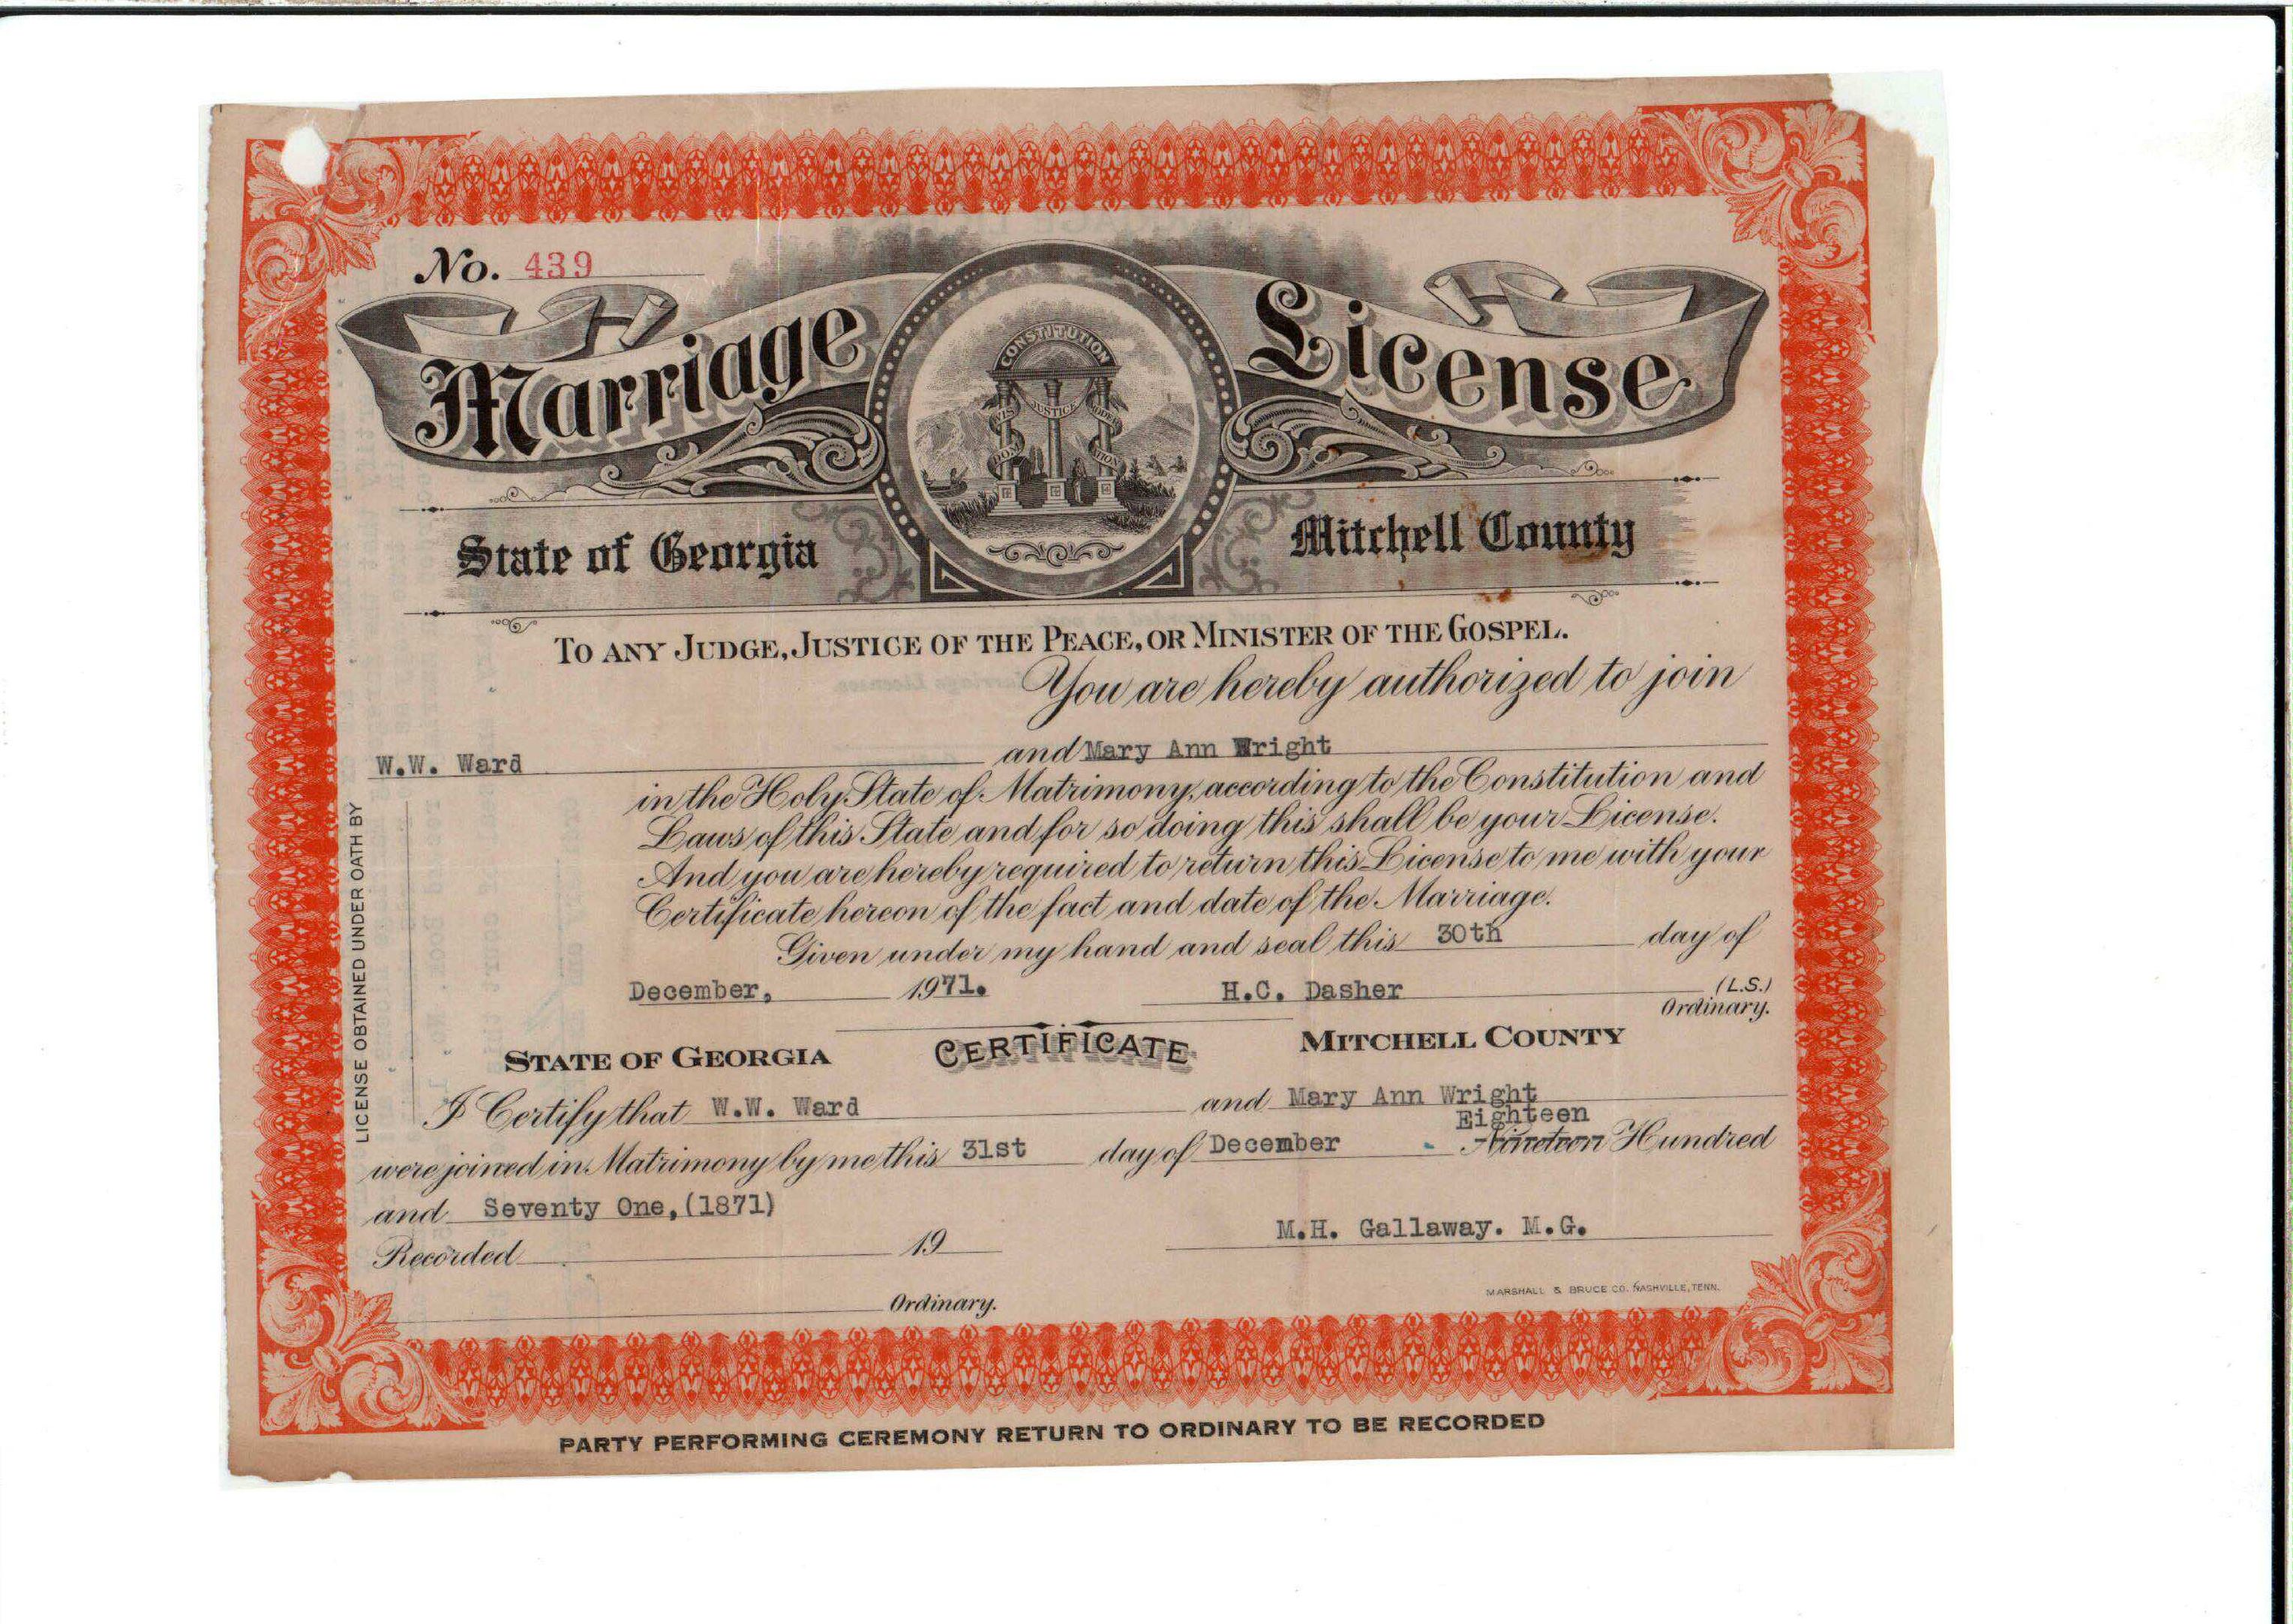 No. 439
Marriage License
CONSTITUTION
WISDOM JUSTICE MODERATION
State of Georgia Mitchell County
TO ANY JUDGE, JUSTICE OF THE PEACE, OR MINISTER OF THE GOSPEL.
You are hereby authorized to join
W.W. Ward and Mary Ann Wright
in the Holy State of Matrimony, according to the Constitution and
Laws of this State and for so doing this shall be your License.
And you are hereby required to return this License to me with your
Certificate hereon of the fact and date of the Marriage.
Given under my hand and seal this 30th day of
December, 1971. H.C. Dasher (L.S.)
Ordinary.
LICENSE OBTAINED UNDER OATH BY
STATE OF GEORGIA CERTIFICATE MITCHELL COUNTY
I Certify that W.W. Ward and Mary Ann Wright
Eighteen
were joined in Matrimony by me this 31st day of December - Nineteen Hundred
and Seventy One, (1871)
M.H. Gallaway. M.G.
Recorded 19
Ordinary.
MARSHALL & BRUCE CO. NASHVILLE, TENN.
PARTY PERFORMING CEREMONY RETURN TO ORDINARY TO BE RECORDED